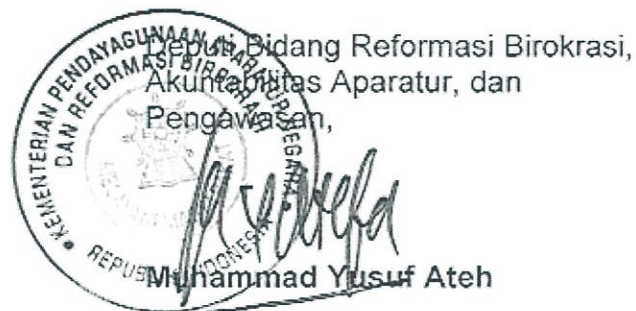 Deputi Bidang Reformasi Birokrasi,
Akuntabilitas Aparatur, dan
Pengawasan,
KEMENTERIAN PENDAYAGUNAAN APARATUR NEGARA
DAN REFORMASI BIROKRASI
REPUBLIK INDONESIA
Muhammad Yusuf Ateh